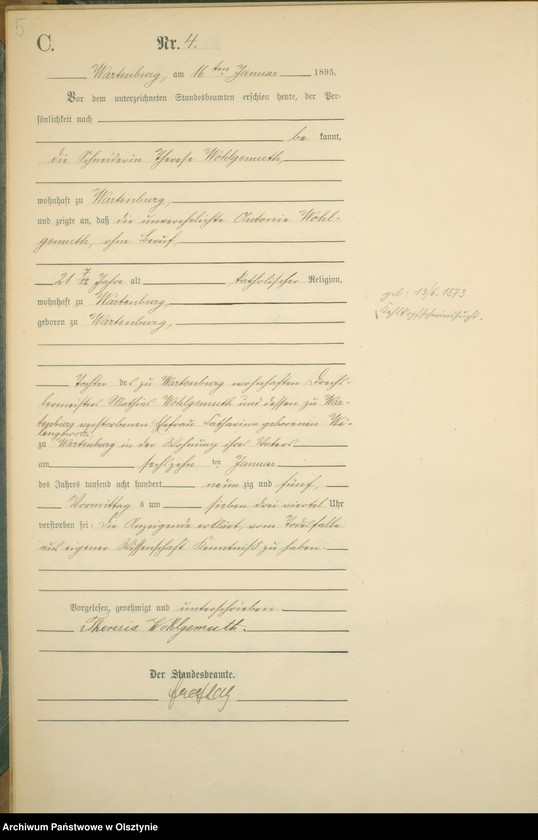 5
C. Nr. 4.
Wartenburg, am 16 ten Januar 1895.
Vor dem unterzeichneten Standesbeamten erschien heute, der Per-
sönlichkeit nach
be kannt,
die Schneiderin Therese Wohlgemuth,
wohnhaft zu Wartenburg,
und zeigte an, daß die unverehelichte Antonie Wohl-
gemuth, ohne Beruf,
21 7/12 Jahre alt katholischer Religion,
wohnhaft zu Wartenburg,
geboren zu Wartenburg,
geb. 13/6. 1873
Kehlkopfschwindsucht.
Tochter des zu Wartenburg wohnhaften Drechs-
lermeisters Mathias Wohlgemuth und dessen zu War-
tenburg verstorbenen Ehefrau Catharina geborenen
zu Wartenburg in der Wohnung ihres Vaters
am sechszehn ten Januar
des Jahres tausend acht hundert neun zig und fünf,
Vormittag s um sieben drei viertel Uhr
verstorben sei. Die Anzeigende erklärt, vom Todesfalle
aus eigener Wissenschaft Kenntniß zu haben.
Vorgelesen, genehmigt und unterschrieben
Theresia Wohlgemuth.
Der Standesbeamte.
Archiwum Państwowe w Olsztynie